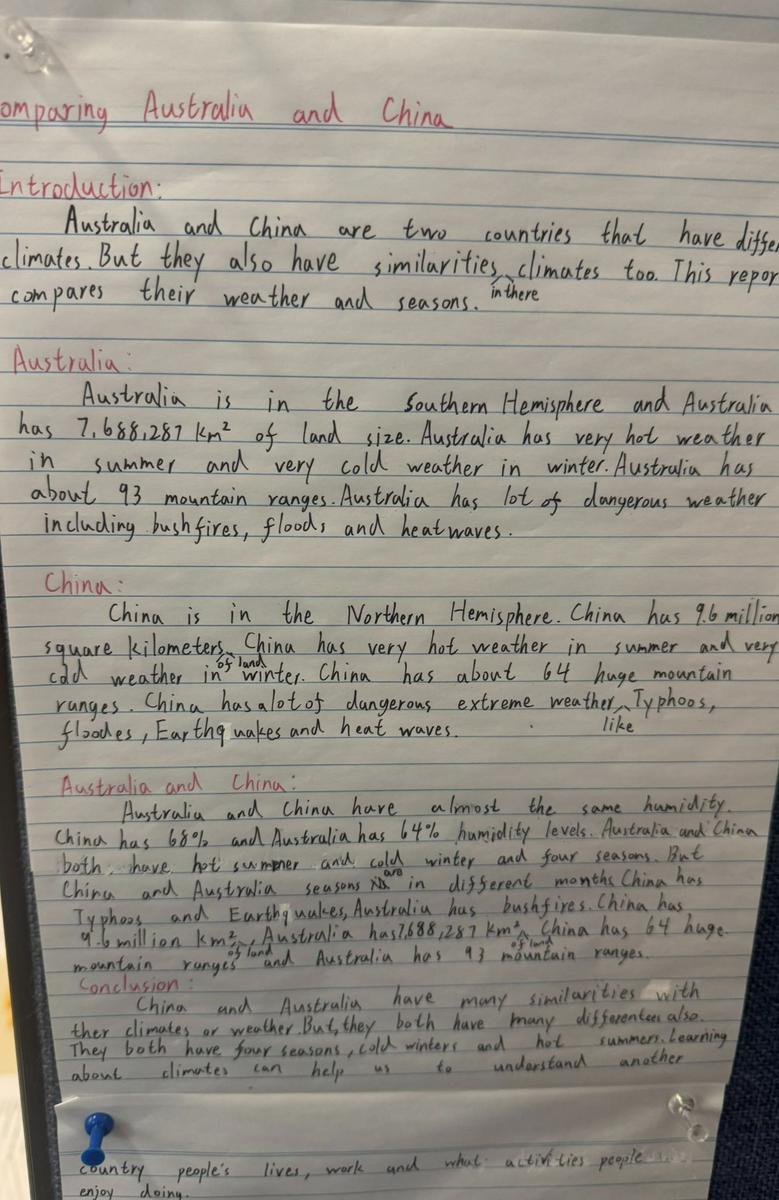 omparing Australia and China
Introduction:
Australia and China are two countries that have differ
climates. But they also have similarities climates too. This repor
in there
compares their weather and seasons.
Australia:
Australia is in the Southern Hemisphere and Australia
has 7,688,287 km² of land size. Australia has very hot weather
in summer and very cold weather in winter. Australia has
about 93 mountain ranges. Australia has lot of dangerous weather
including bushfires, floods and heatwaves.
China:
China is in the Northern Hemisphere. China has 9.6 million
square kilometers. China has very hot weather in summer and very
of land
cold weather in winter. China has about 64 huge mountain
ranges. China has a lot of dangerous extreme weather Typhoos,
like
floodes, Earthquakes and heat waves.
Australia and China:
Australia and China have almost the same humidity.
China has 68% and Australia has 64% humidity levels. Australia and China
both have hot summer and cold winter and four seasons. But
are
China and Australia seasons in different months China has
Typhoos and Earthquakes, Australia has bushfires. China has
9.6 million km², Australia has 7,688,287 km² China has 64 huge
of land of land
mountain ranges and Australia has 93 mountain ranges.
Conclusion:
China and Australia have many similarities with
ther climates or weather. But, they both have many differentees also.
They both have four seasons, cold winters and hot summers. Learning
about climates can help us to understand another
country people's lives, work and what activities people
enjoy doing.